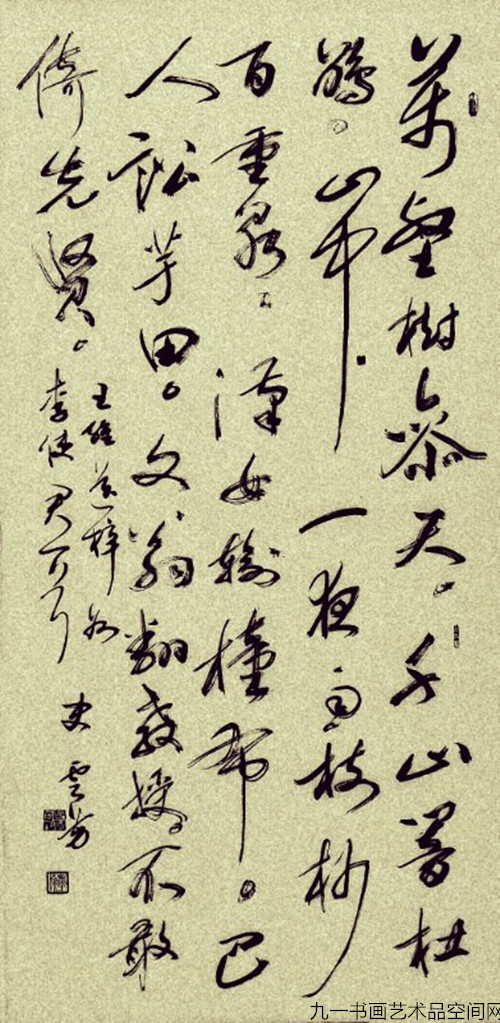 萬壑樹參天。千山響杜
鵑。山中一夜雨枝杪
百重泉。漢女輸橦布。巴
人訟芋田。文翁翻教授。不敢
倚先賢。
王維送梓州
李使君
史雲芳
九一书画艺术品空间网